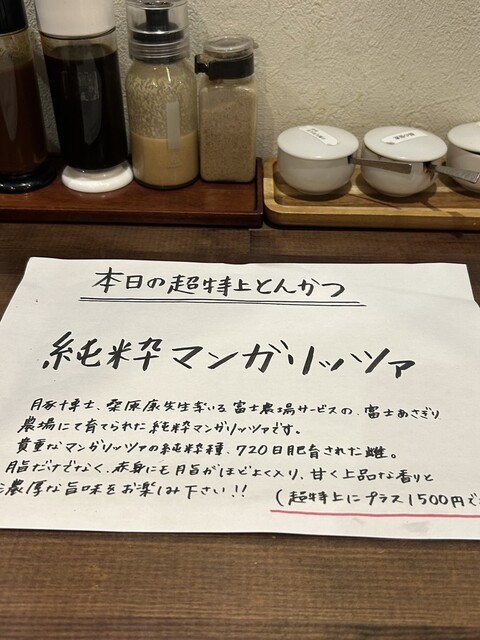 本日の超特上とんかつ
純粋マンガリッツァ
豚博士、桑原康先生率いる富士農場サービスの、富士あさぎり
農場にて育てられた純粋マンガリッツァです。
貴重なマンガリッツァの純粋種、720日肥育された雌。
脂だけでなく、赤身にも脂がほどよく入り、甘く上品な香りと
濃厚な旨味をお楽しみ下さい!!
(超特上にプラス1500円で